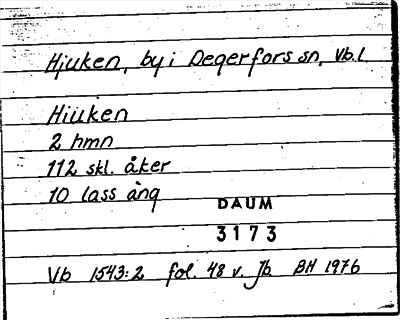 Hjuken, by i Degerfors sn, Vb.l.
Hiuken
2 hmn
112 skl. åker
10 lass äng
DAUM
3173
Vb 1543:2 fol. 48 v. Jb BH 1976